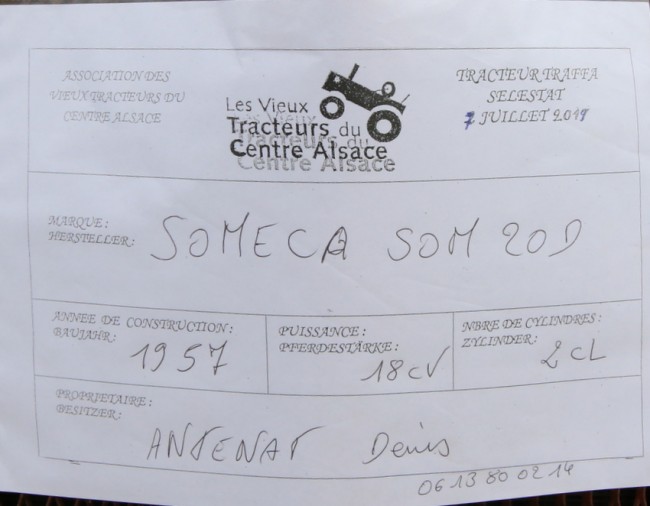 ASSOCIATION DES
VIEUX TRACTEURS DU
CENTRE ALSACE
Les Vieux
Tracteurs du
Centre Alsace
TRACTEUR TRAFFA
SELESTAT
7 JUILLET 2019
MARQUE :
HERSTELLER :
SOMECA SOM 20D
ANNEE DE CONSTRUCTION :
BAUJAHR :
1957
PUISSANCE :
PFERDESTÄRKE :
18 CV
NBRE DE CYLINDRES :
ZYLINDER :
2 CL
PROPRIETAIRE :
BESITZER :
ANTENAT Denis
06 13 80 02 14